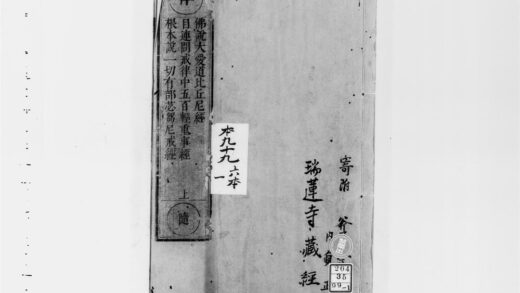 佛說大愛道比丘尼經
目連問戒律中五百輕重事經
根本說一切有部苾芻尼戒經
上
隨
本九十九
六本
一
寄附
瑞蓮寺藏經
204
35